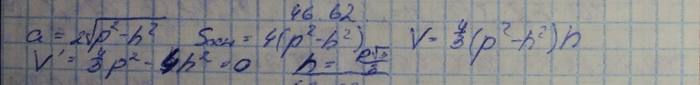 46 62
a = 2√(p²-h²) Sосн = 4(p²-h²) V = 4/3 (p²-h²)h
V' = 4/3 p² - 4h² = 0 h = p√3/3